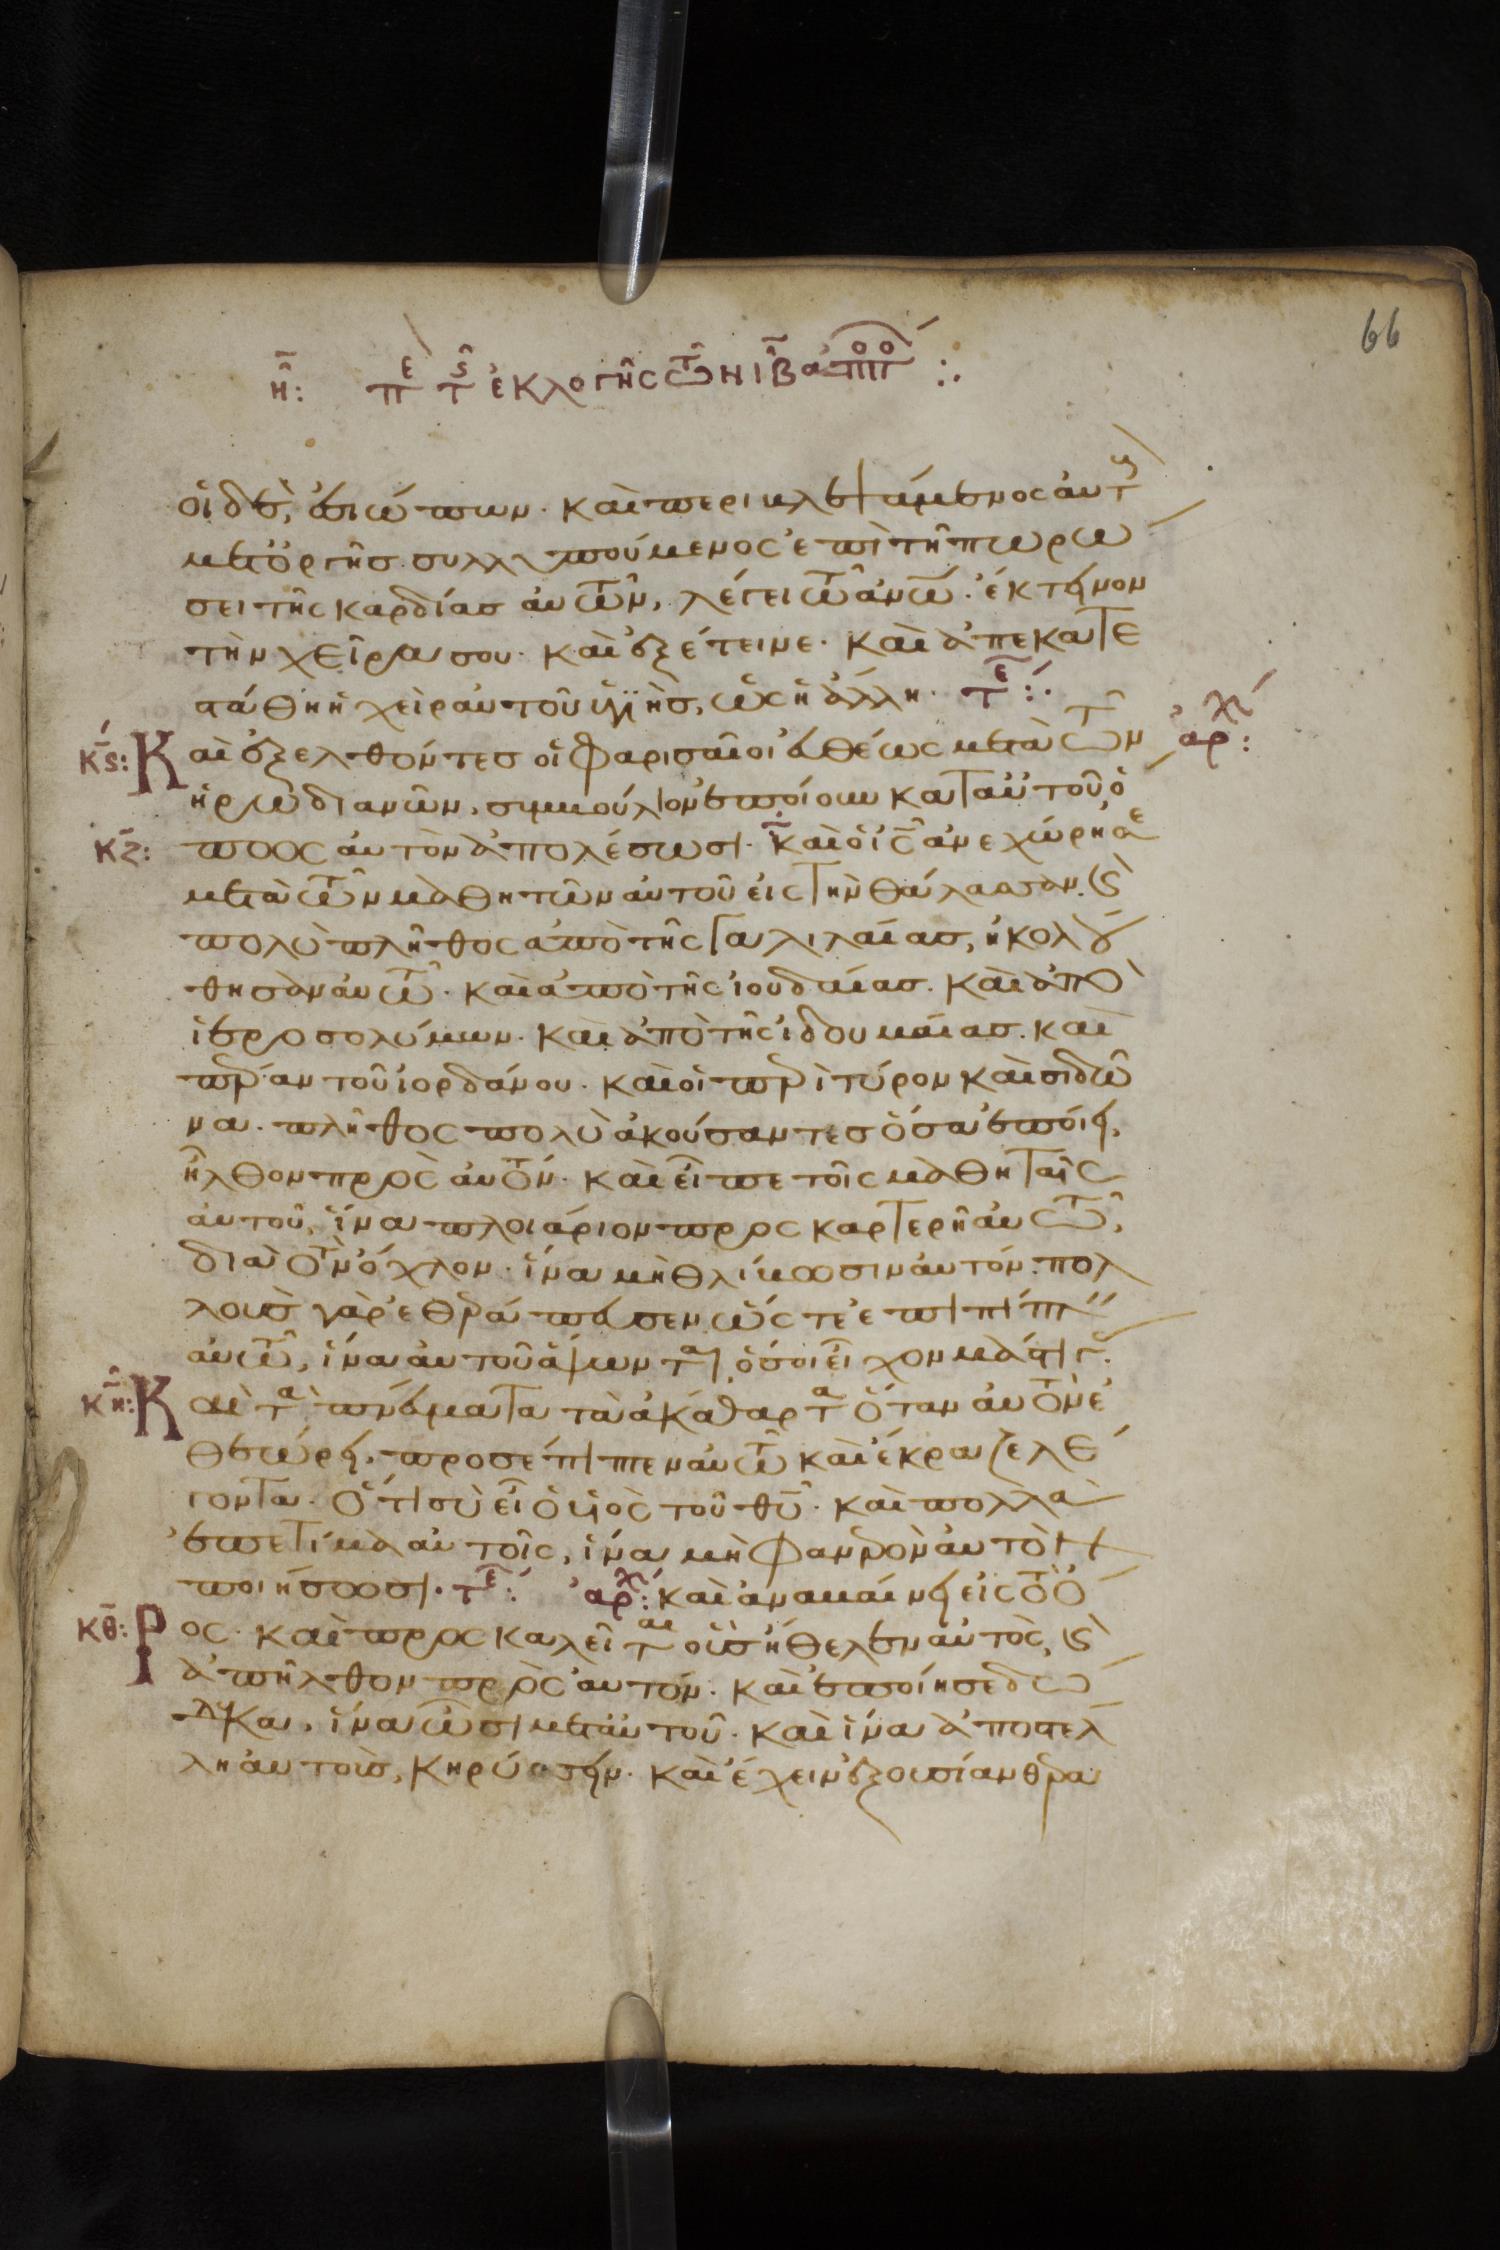 66
η: πε τς ἐκλογῆς τῶν ιβ ἀποπο :.
οἱ δὲ, ἐσιώπων. καὶ περιβλεψάμενος αὐτοὺς
μετ' ὀργῆς. συλλυπούμενος ἐπὶ τῆ πωρώ
σει τῆς καρδίας αὐτῶν, λέγει τῶ ἀνω. ἔκτεινον
τὴν χεῖρα σου. καὶ ἐξέτεινε. καὶ ἀπεκατε
στάθη ἡ χεὶρ αὐτοῦ ὑγιὴς, ὡς ἡ ἄλλη. τε:.
κς: Καὶ ἐξελθόντες οἱ φαρισαῖοι εὐθέως μετὰ τῶν αρχ:
ἡρωδιανῶν, συμβούλιον ἐποίουν κατ' αὐτοῦ ὅ
κζ: πως αὐτὸν ἀπολέσωσι. καὶ ὁ ις ἀνεχώρησε
μετὰ τῶν μαθητῶν αὐτοῦ εἰς τὴν θάλασσαν. κ
πολὺ πλῆθος ἀπὸ τῆς γαλιλαίας, ἠκολού
θησαν αὐτῶ. καὶ ἀπὸ τῆς ἰουδαίας. καὶ ἀπὸ
ἱεροσολύμων. καὶ ἀπὸ τῆς ἰδουμαίας. καὶ
πέραν τοῦ ἰορδάνου. καὶ οἱ περὶ τύρον καὶ σιδῶ
να. πλῆθος πολὺ ἀκούσαντες ὅσα ἐποίει,
ἦλθον πρὸς αὐτόν. καὶ εἶπε τοῖς μαθηταῖς
αὐτοῦ, ἵνα πλοιάριον προσκαρτερῆ αὐτῶ,
διὰ τὸν ὄχλον. ἵνα μὴ θλίβωσιν αὐτόν. πολ
λοὺς γὰρ ἐθεράπευσεν ὥστε ἐπιπίπτειν
αὐτῶ, ἵνα αὐτοῦ ἅψωνται, ὅσοι εἶχον μάστιγας.
κη: Καὶ τὰ πνεύματα τὰ ἀκάθαρτα ὅταν αὐτὸν ἐ
θεώρει, προσέπιπτεν αὐτῶ καὶ ἔκραζε λέ
γοντα. ὅτι σὺ εἶ ὁ υἱὸς τοῦ θυ. καὶ πολλὰ
ἐπετίμα αὐτοῖς, ἵνα μὴ φανερὸν αὐτὸν
ποιήσωσι. τε: αρχ: καὶ ἀναβαίνει εἰς τὸ ὄ
κθ: ρος. καὶ προσκαλεῖται οὓς ἤθελεν αὐτὸς, κ
ἀπῆλθον πρὸς αὐτόν. καὶ ἐποίησε δώ
δεκα, ἵνα ὦσι μετ' αὐτοῦ. καὶ ἵνα ἀποστέλ
λη αὐτοὺς, κηρύσσειν. καὶ ἔχειν ἐξουσίαν θερα